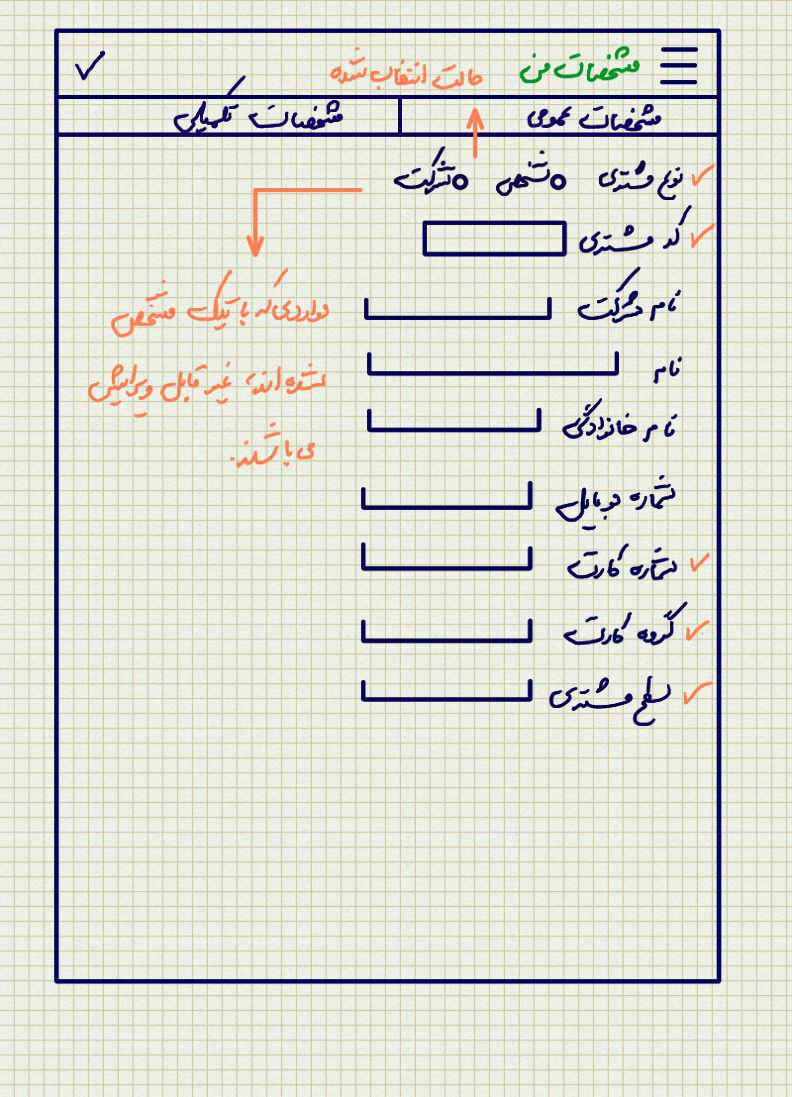 مشخصات من
حالت انتخاب شده
مشخصات عمومی
مشخصات تکمیلی
نوع مشتری
شخص
شرکت
کد مشتری
نام شرکت
نام
نام خانوادگی
شماره موبایل
شماره کارت
گروه کارت
سطح مشتری
مواردی که با تیک مشخص
شده اند، غیر قابل ویرایش
می باشند.